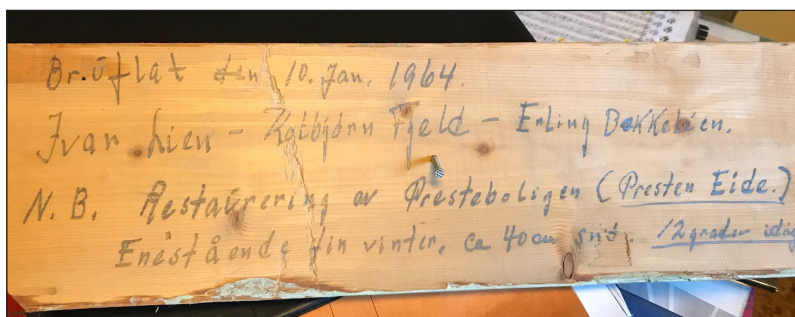 Bruflat den 10. Jan. 1964.
Ivar Lien - Kolbjørn Fjeld - Erling Bakkelien.
N.B. Restaurering av Presteboligen (Presten Eide.)
Enestående fin vinter, ca 40 cm snø. 12 grader idag